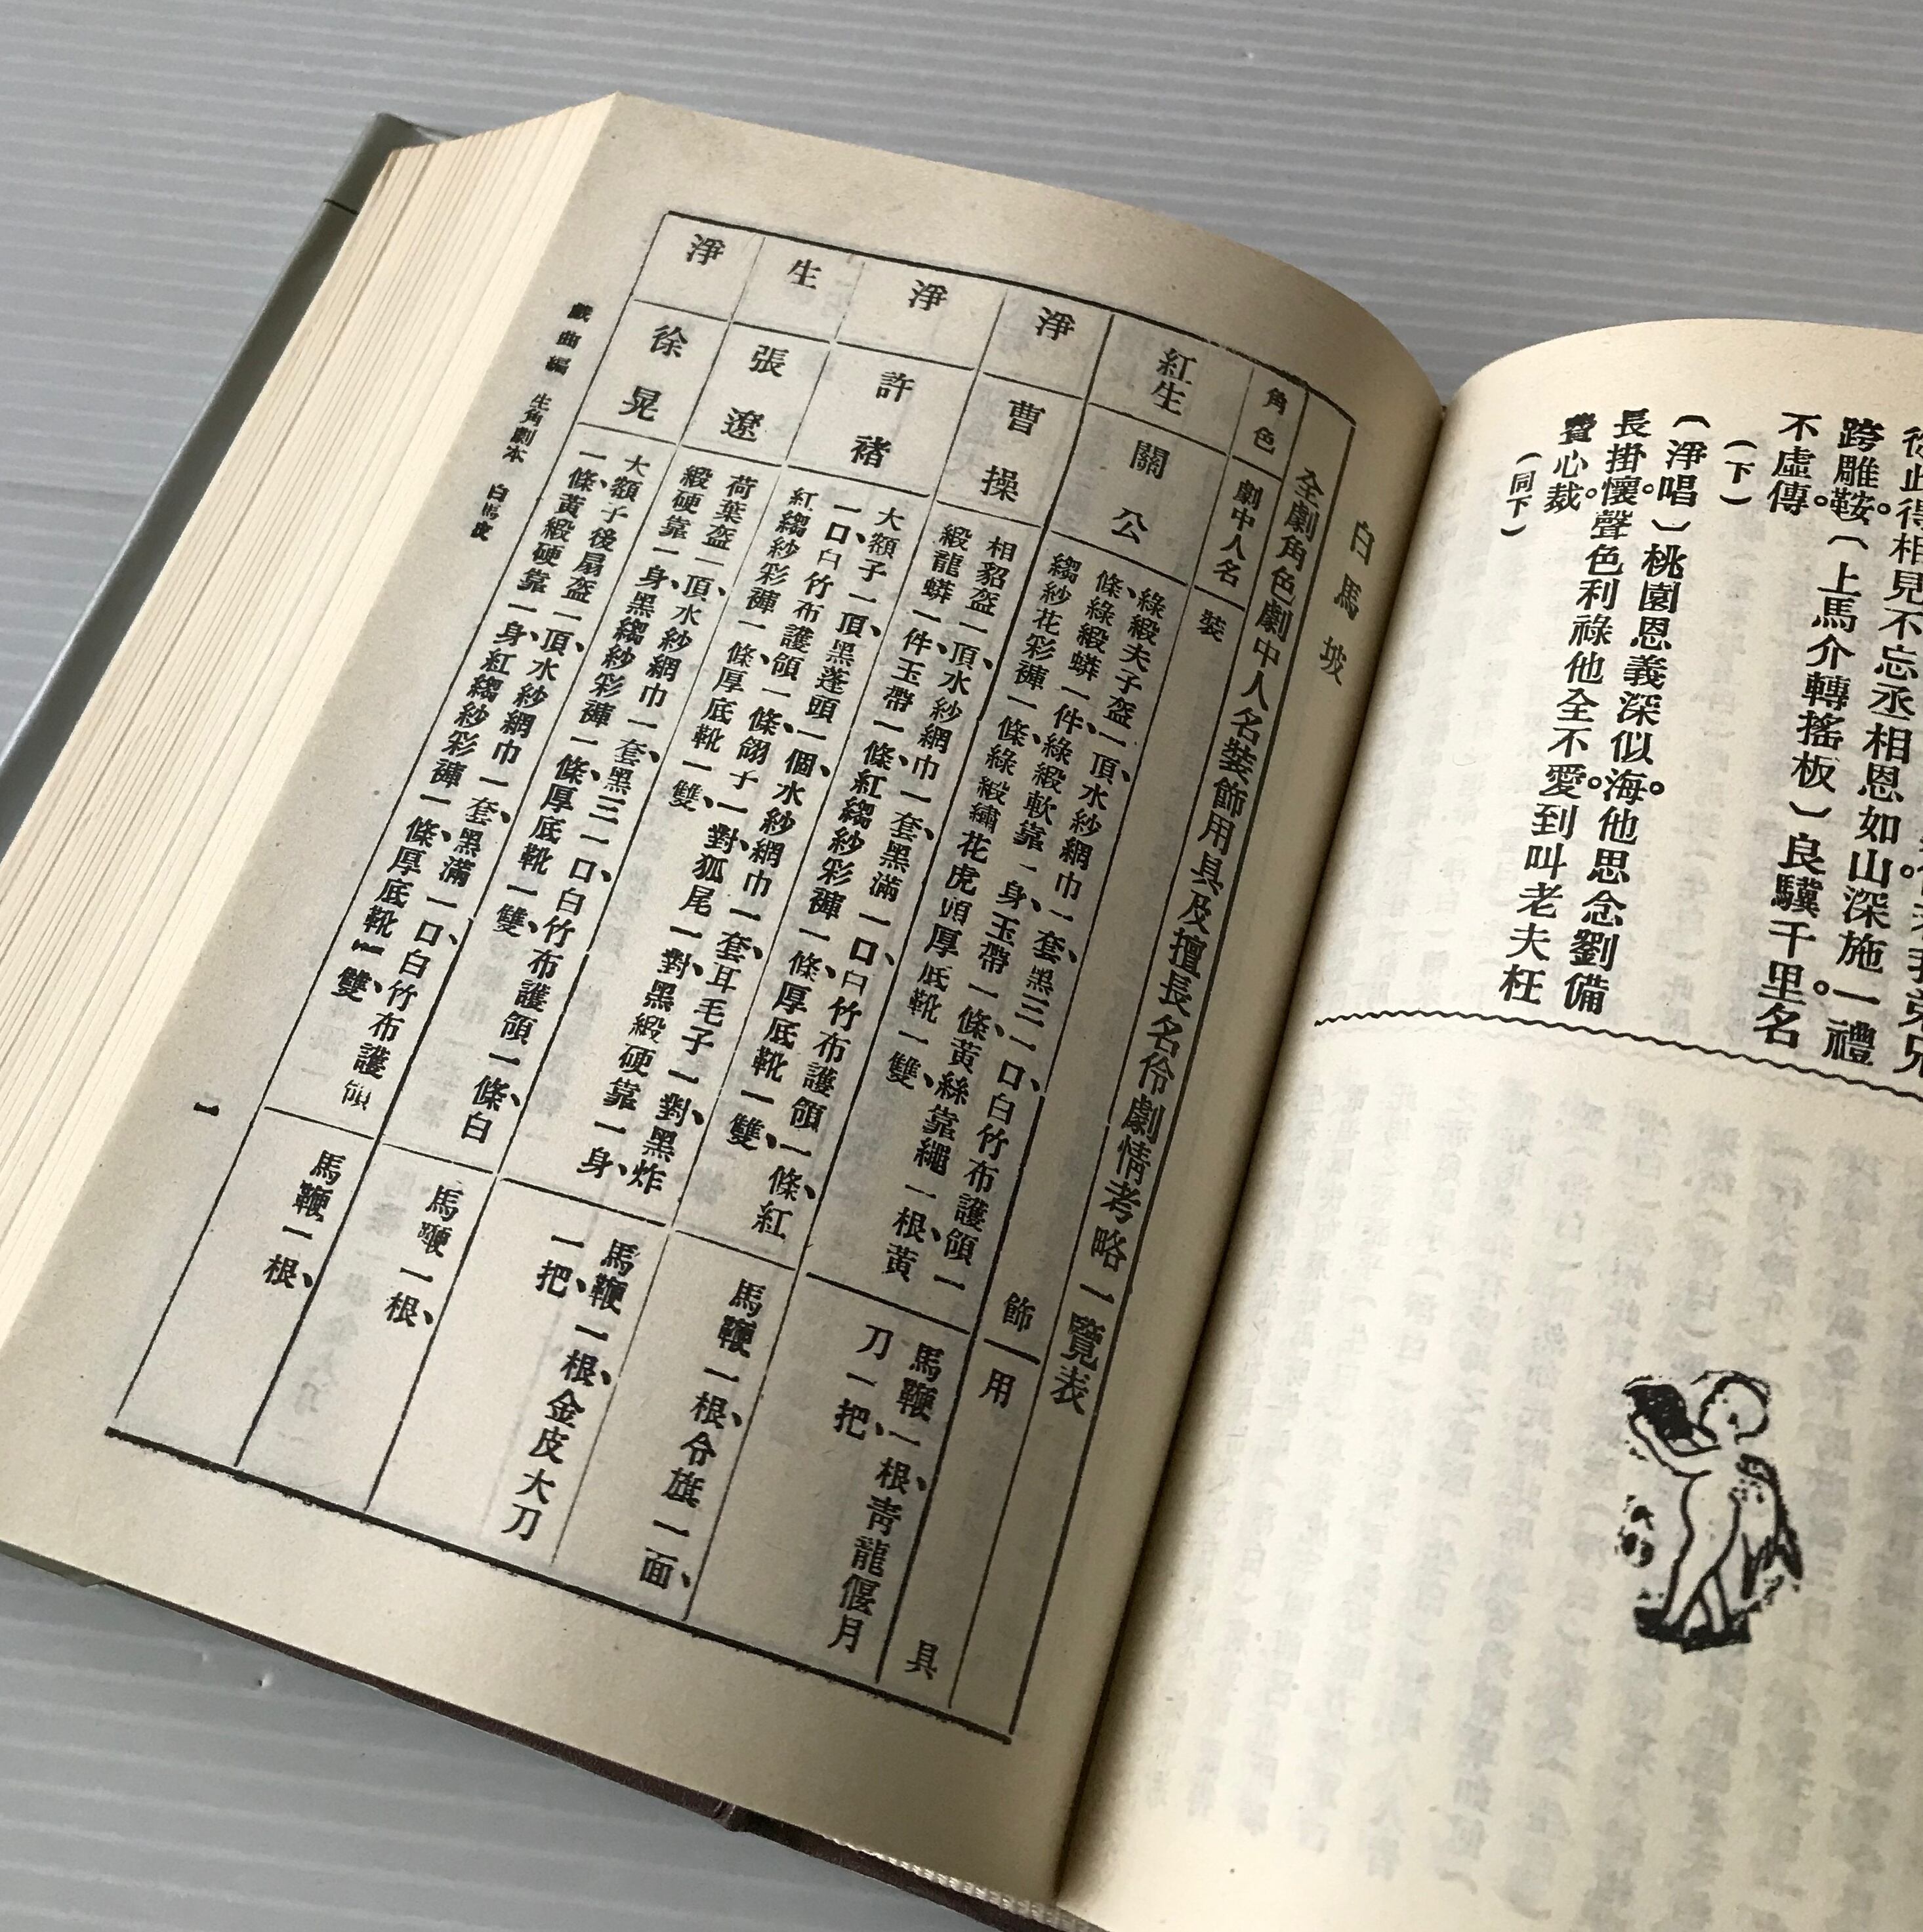 從此得相見不忘丞相恩如山。深施一禮
跨雕鞍。〔上馬介轉搖板〕良驥千里。名
不虛傳。
（下）
（淨唱〕桃園恩義深似海。他思念劉備
長掛懷。聲色利祿他全不愛。到叫老夫枉
費心裁。
（同下）
白馬坡
全劇角色劇中人名裝飾用具及擅長名伶劇情考略一覽表
角色
劇中人名
裝飾
用具
紅生
關公
綠緞夫子盔一頂、水紗網巾一套、黑三一口、白竹布護領一
條、綠緞蟒一件、綠緞軟靠一身、玉帶一條、黃絲靠繩一根、黃
縐紗花彩褲一條、綠緞繡花虎頭厚底靴一雙、
馬鞭一根、青龍偃月
刀一把、
淨
曹操
相貂盔一頂、水紗網巾一套、黑滿一口、白竹布護領一條、紅
緞龍蟒一件、玉帶一條、紅縐紗彩褲一條、厚底靴一雙、
馬鞭一根、令旗一面、
淨
許褚
大額子一頂、黑蓬頭一個、水紗網巾一套、耳毛子一對、黑炸
一口、白竹布護領一條、翎子一對、狐尾一對、黑緞硬靠一身、
紅縐紗彩褲一條、厚底靴一雙、
馬鞭一根、金皮大刀
一把、
生
張遼
荷葉盔一頂、水紗網巾一套、黑三一口、白竹布護領一條、白
緞硬靠一身、黑縐紗彩褲一條、厚底靴一雙、
馬鞭一根、
淨
徐晃
大額子後扇盔一頂、水紗網巾一套、黑滿一口、白竹布護領
一條、黃緞硬靠一身、紅縐紗彩褲一條、厚底靴一雙、
馬鞭一根、
戲曲編 生角劇本 白馬坡
一